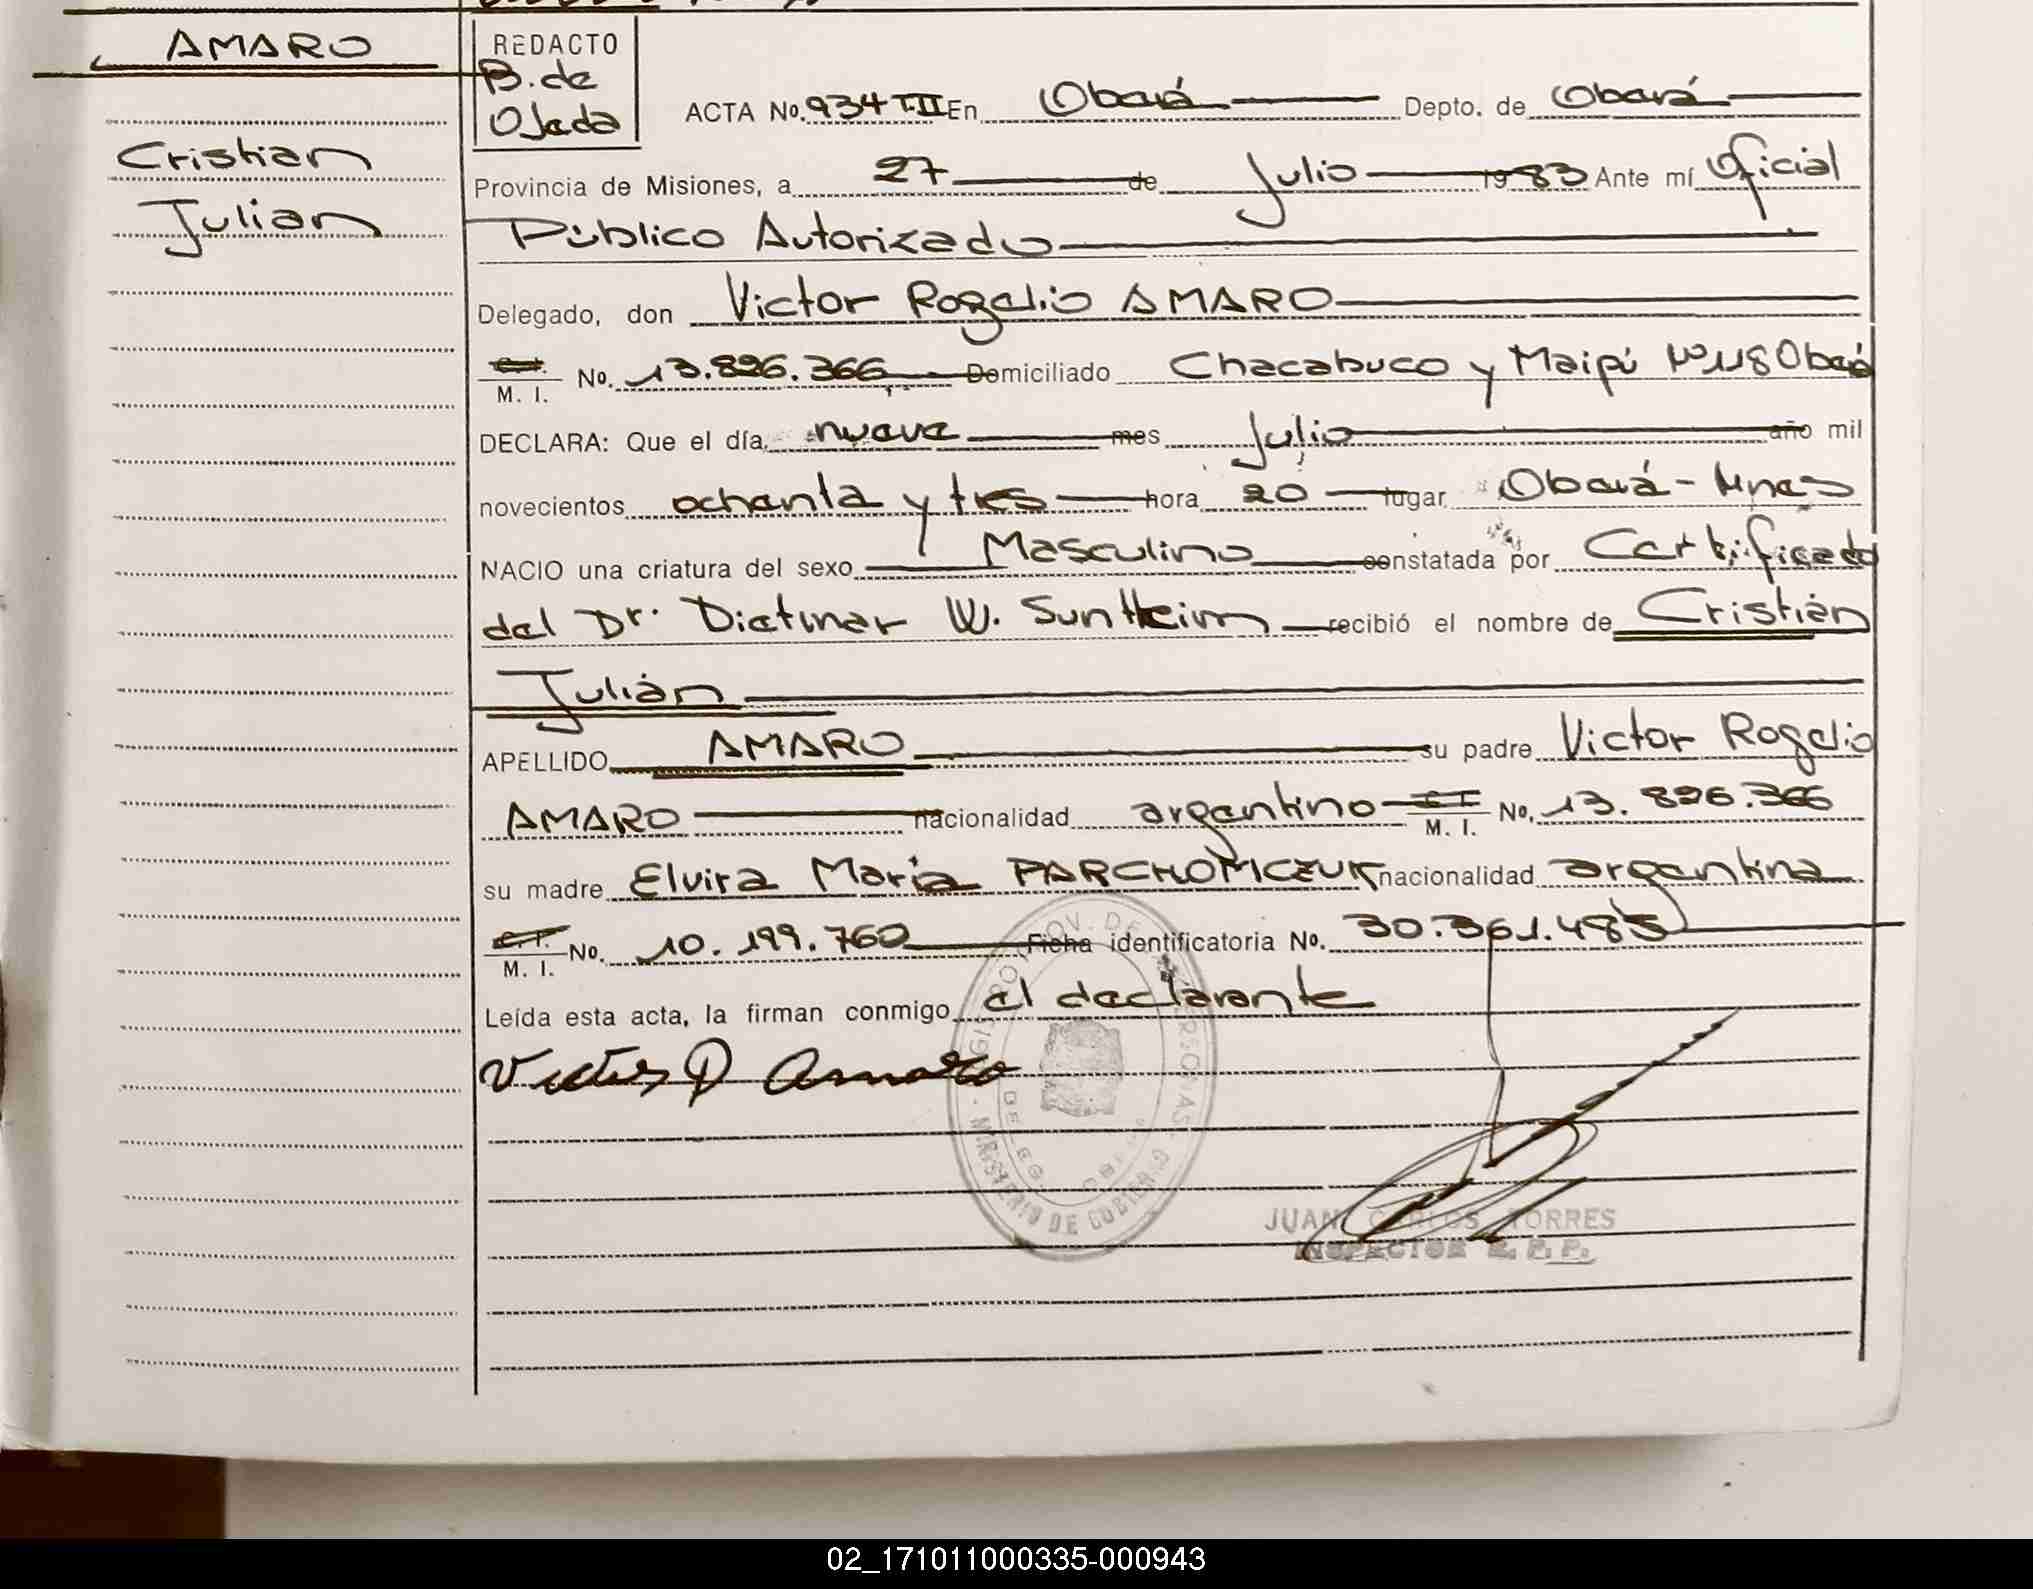 AMARO
Cristian
Julian
REDACTO
B. de
Ojeda
ACTA No. 934 T.II En Oberá Depto. de Oberá
Provincia de Misiones, a 27 de Julio 1983 Ante mí Oficial
Público Autorizado
Delegado, don Victor Rogelio AMARO
M. I. No. 13.896.366 Domiciliado Chacabuco y Maipú Nº 118 Oberá
DECLARA: Que el día, nueve mes Julio año mil
novecientos ochenta y tres hora 20 lugar Oberá - Mnes
NACIO una criatura del sexo Masculino constatada por Certificado
del Dr. Dietmar W. Suntheim recibió el nombre de Cristián
Julián
APELLIDO AMARO su padre Victor Rogelio
AMARO nacionalidad argentino C. I. M. I. No. 13.896.366
su madre Elvira María PARCHOMCZUK nacionalidad argentina
C. I. M. I. No. 10.199.760 Ficha identificatoria No. 30.361.485
Leída esta acta, la firman conmigo el declarante
Victor R Amaro
MINISTERIO DE GOBIERNO
JUAN CARLOS TORRES
INSPECTOR R. P. P.
02_171011000335-000943